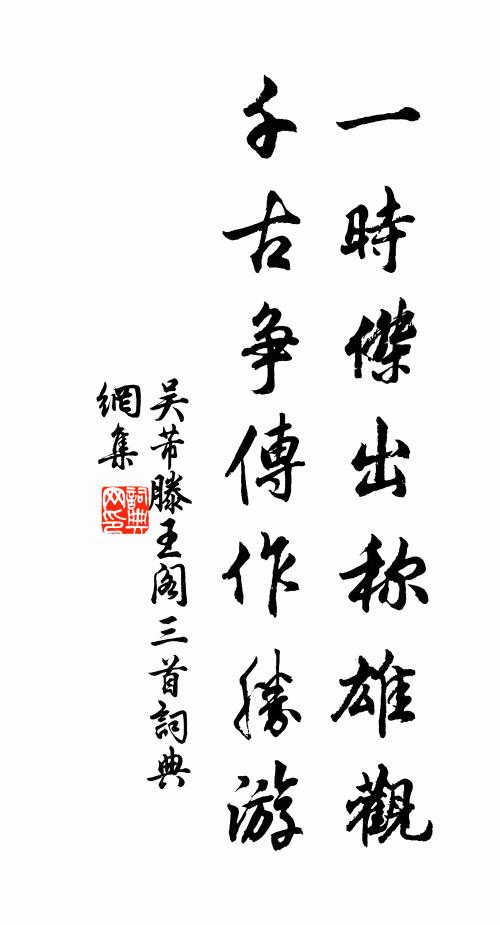 一時傑出称雄觀
千古争傳作勝游
吴芾滕王阁三首詞典
網集
詞典
网印